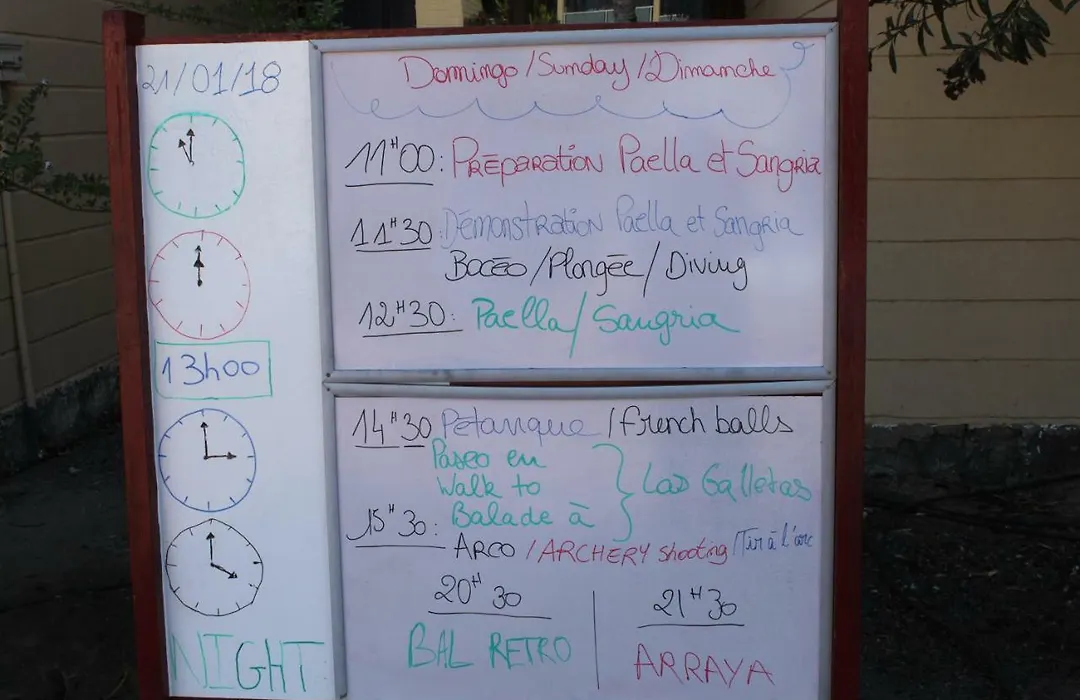 21/01/18
Domingo/Sunday/Dimanche
11H00: PRÉPARATION Paella et SANGRIA
11H30: DÉMONSTRATION Paella et SANGRIA
BOCÉO/Plongée/Diving
12H30: Paella/Sangria
13h00
14H30 Petanque/french balls
Paseo en
Walk to
Balade à
Las Galletas
15H30:
ARCO/ARCHERY shooting/Tir à l'arc
20H30
21H30
NIGHT
BAL RETRO
ARRAYA